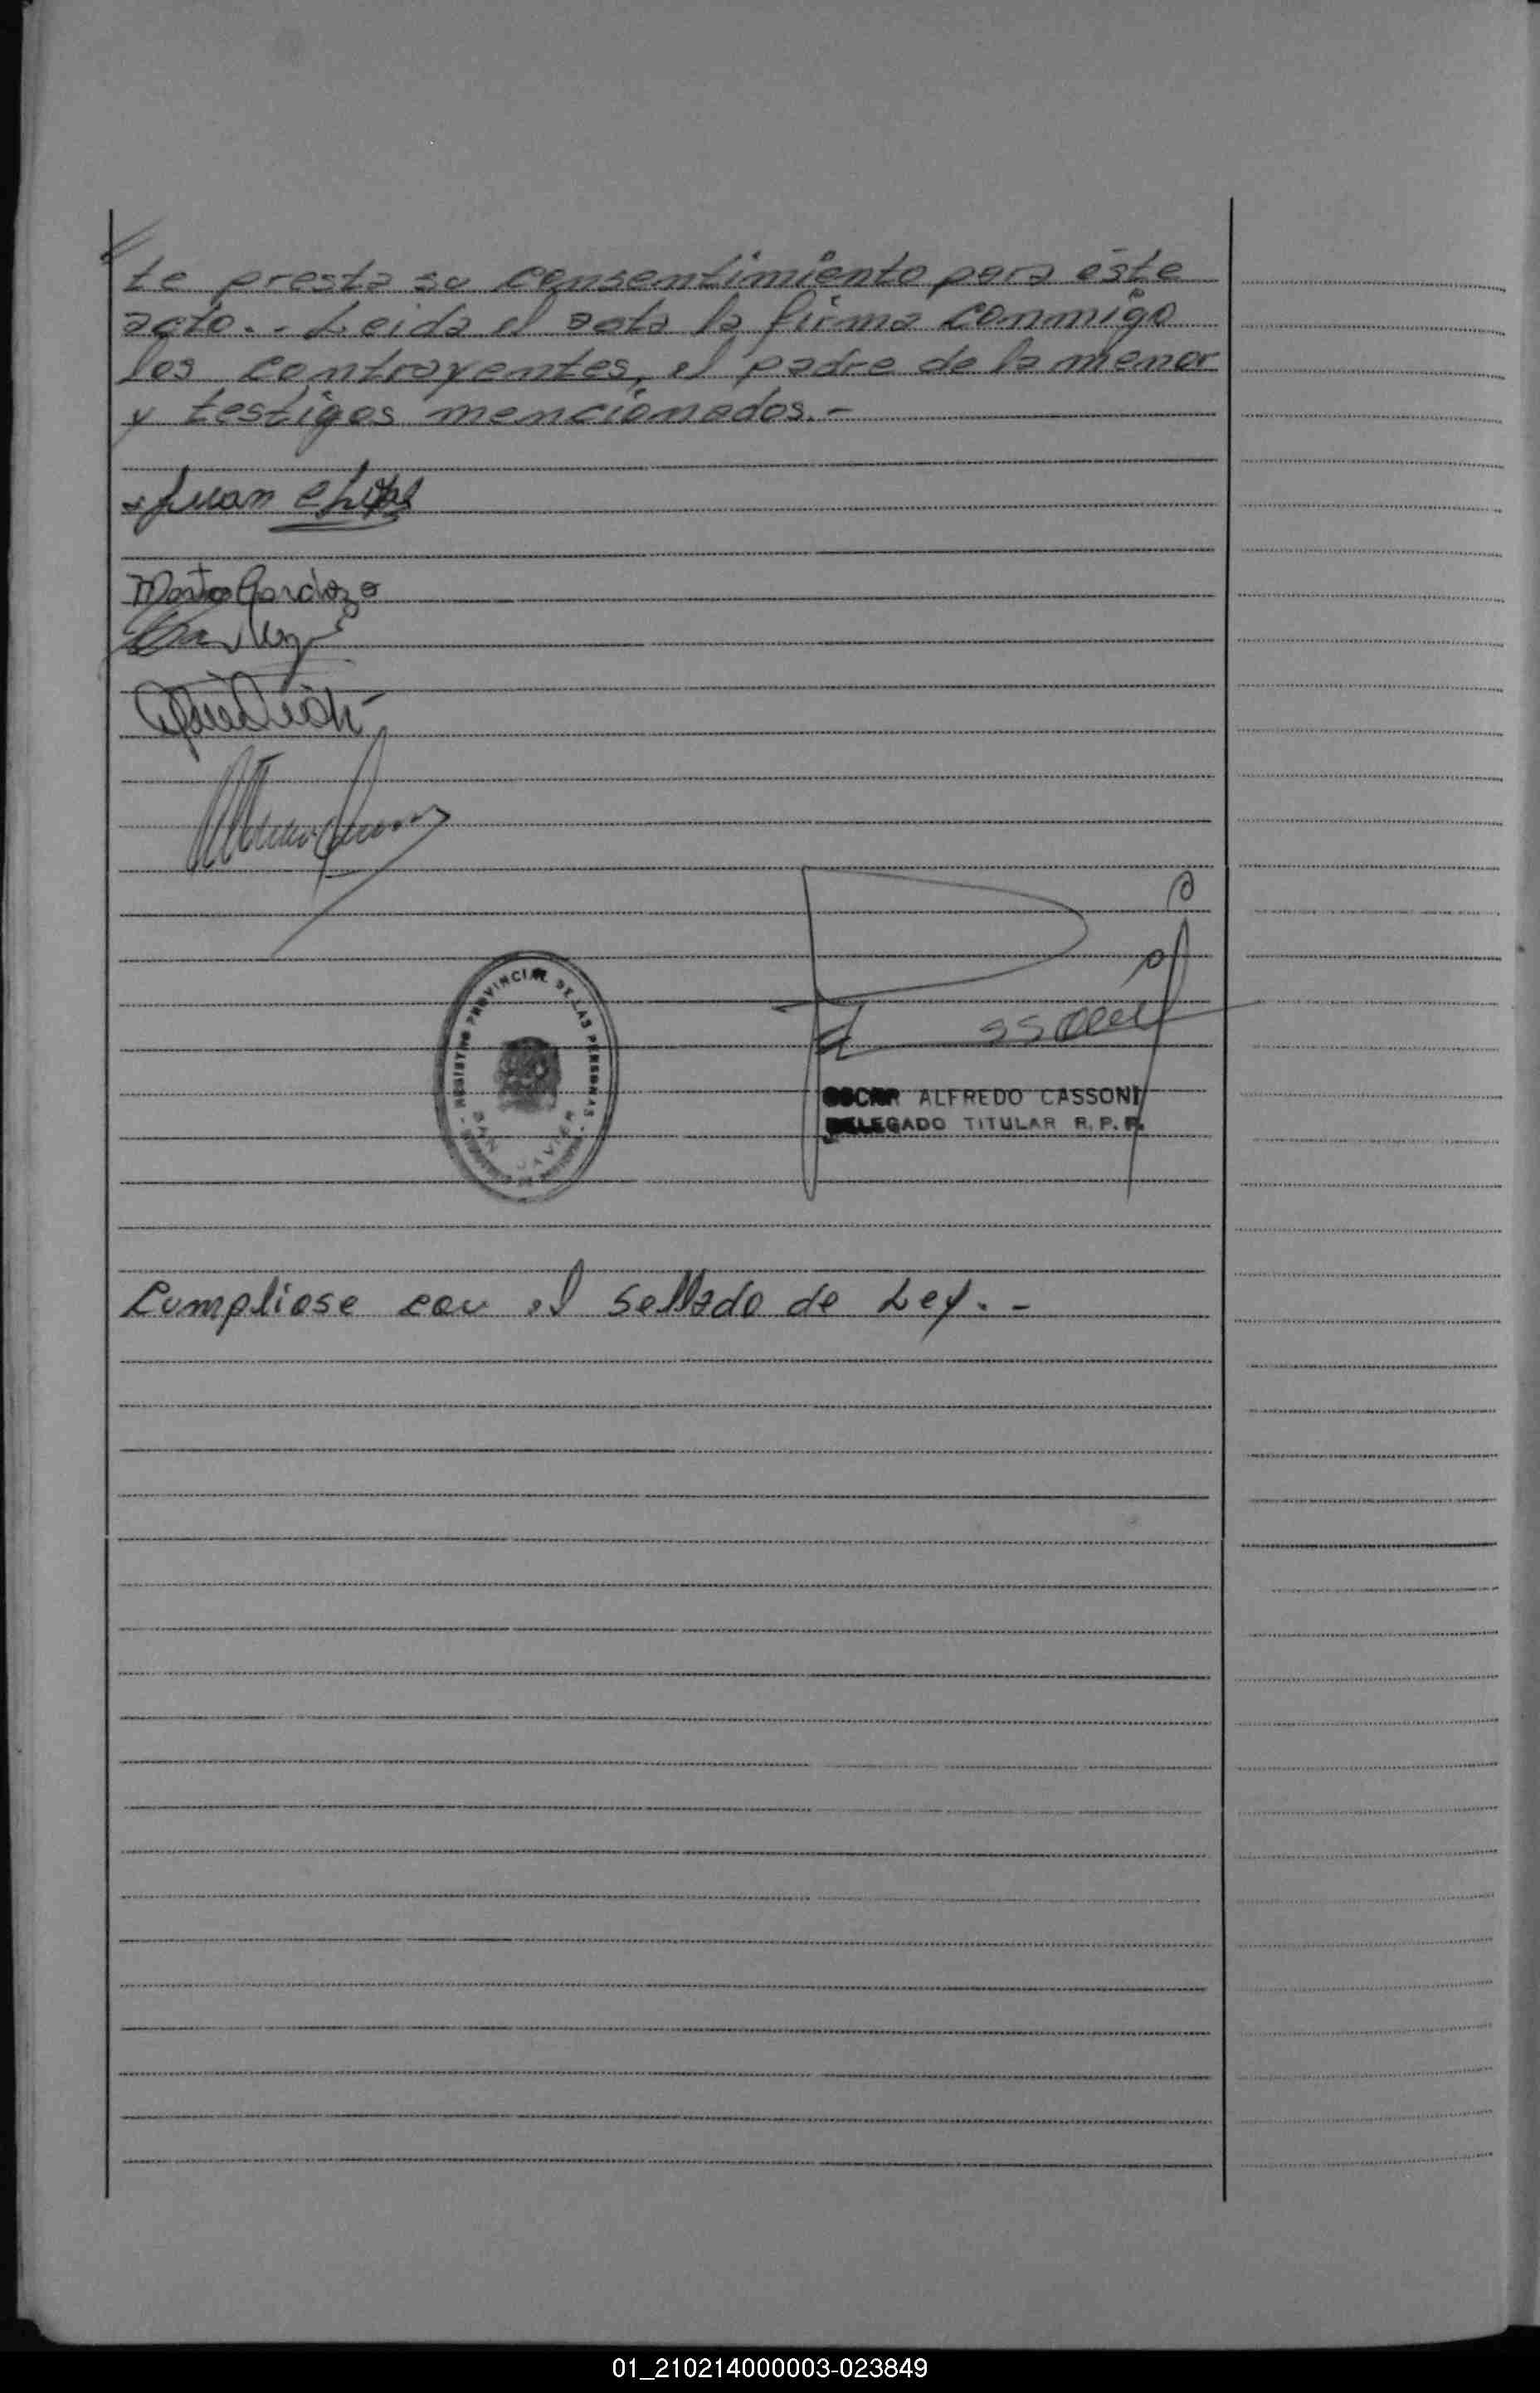 te presta su consentimiento para éste
acto.- Leida el acta la firma conmigo
los contrayentes, el padre de la menor
y testigos mencionados.-
Juan
Marta Cardozo
REGISTRO PROVINCIAL DE LAS PERSONAS
SAN JAVIER
OSCAR ALFREDO CASSONI
DELEGADO TITULAR R. P. P.
Cumpliose con el Sellado de Ley.-
01_210214000003-023849